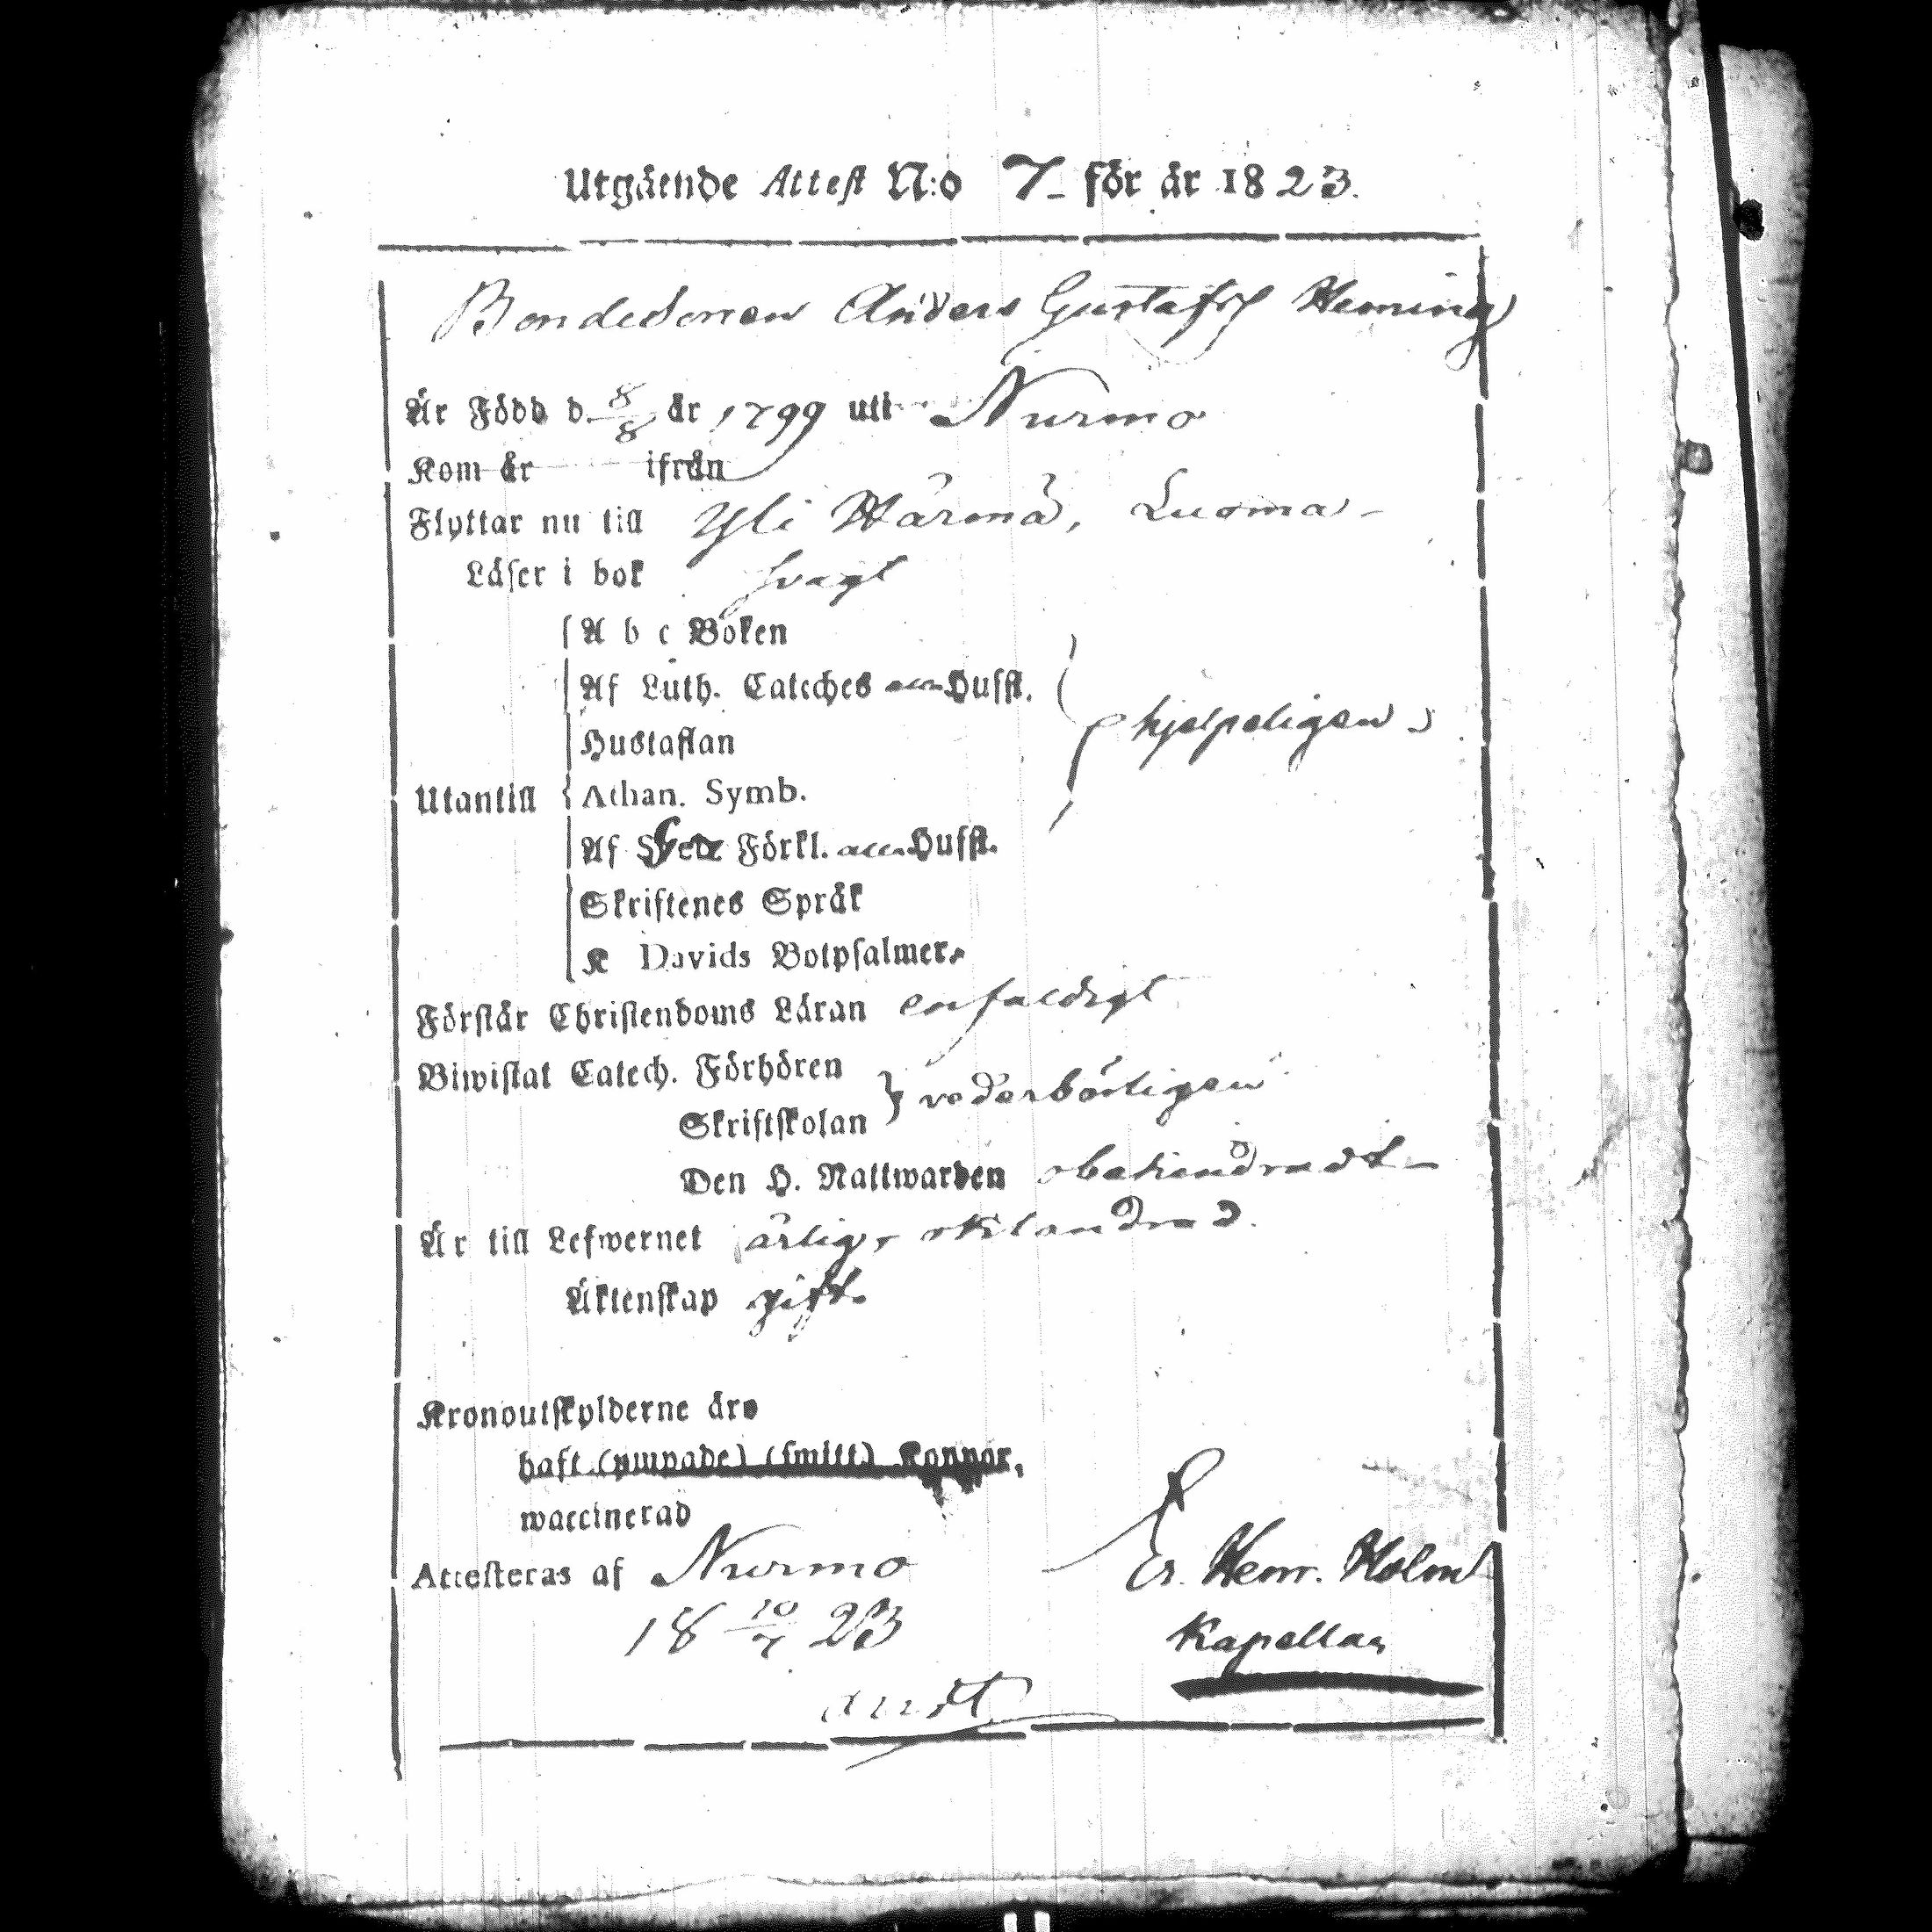 Utgående Attest N:o 7 för år 1823.
Bondesonen Anders Gustafss Heming
Är Född d. 8/8 år 1799 uti Nurmo
Kom år ifrån
Flyttar nu till Yli Härmä, Luoma
Läser i bok svagt
A b c Boken
Af Luth. Cateches Hufst.
Hustaflan
hjelpeligen
Utantill Athan. Symb.
Af Förkl. Hufst.
Skriftenes Språk
K Davids Botpsalmer.
Förstår Christendoms Läran enfaldigt
Biwistat Catech. Förhören
Skriftskolan
vederbörligen
Den H. Nattwarden obehindradt
Är till Lefwernet ärlig, oklandrad.
Äktenskap gift.
Kronoutskylderne äro
haft (ympade) (smitt) Koppor,
waccinerad
Attesteras af Nurmo
18 10/7 23
Er. Henr. Holm
Kapellan